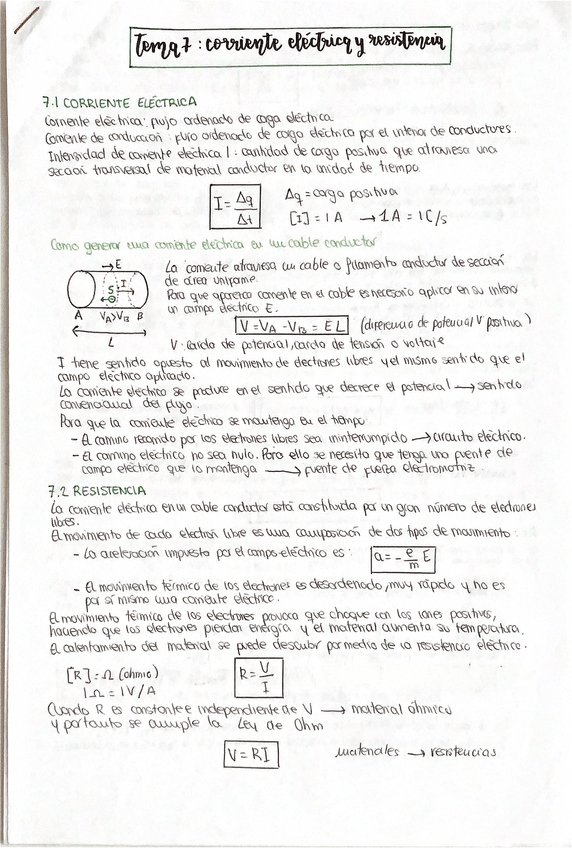 Tema 7: corriente eléctrica y resistencia
7.1 CORRIENTE ELÉCTRICA
Corriente eléctrica: flujo ordenado de carga eléctrica.
Corriente de conducción: flujo ordenado de carga eléctrica por el interior de conductores.
Intensidad de corriente eléctrica I: cantidad de carga positiva que atraviesa una
sección transversal de material conductor en la unidad de tiempo.
I = Δq / Δt
Δq = carga positiva
[I] = 1 A → 1A = 1C/s
Como generar una corriente eléctrica en un cable conductor
E
S I
A VA>VB B
L
La corriente atraviesa un cable o filamento conductor de sección
de área uniforme.
Para que aparezca corriente en el cable es necesario aplicar en su interior
un campo eléctrico E.
V = VA - VB = E L (diferencia de potencial V positiva)
V: caída de potencial, caída de tensión o voltaje
I tiene sentido opuesto al movimiento de electrones libres y el mismo sentido que el
campo eléctrico aplicado.
La corriente eléctrica se produce en el sentido que decrece el potencial → sentido
convencional del flujo.
Para que la corriente eléctrica se mantenga en el tiempo:
- El camino recorrido por los electrones libres sea ininterrumpido → circuito eléctrico.
- El camino eléctrico no sea nulo. Para ello se necesita que tenga una fuente de
campo eléctrico que lo mantenga → fuente de fuerza electromotriz
7.2 RESISTENCIA
La corriente eléctrica en un cable conductor está constituida por un gran número de electrones
libres.
El movimiento de cada electrón libre es una composición de dos tipos de movimiento:
- La aceleración impuesta por el campo eléctrico es: a = - e/m E
- El movimiento térmico de los electrones es desordenado, muy rápido y no es
por sí mismo una corriente eléctrica.
El movimiento térmico de los electrones provoca que choque con los iones positivos,
haciendo que los electrones pierdan energía y el material aumenta su temperatura.
El calentamiento del material se puede describir por medio de la resistencia eléctrica.
[R] = Ω (ohmio)
1Ω = 1V/A
R = V / I
Cuando R es constante e independiente de V → material óhmico
y por tanto se cumple la Ley de Ohm
V = RI
materiales → resistencias